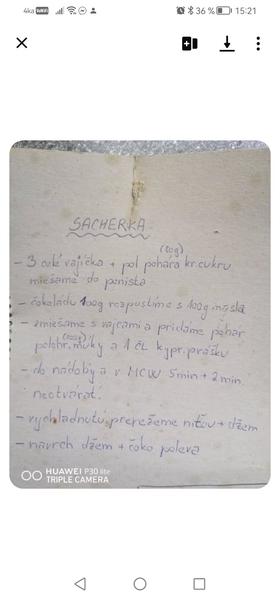 4ka
36 %
15:21
SACHERKA
- 3 celé vajíčka + pol pohára kr. cukru
miešame do penista
- čokoládu 100g rozpustíme s 100g masla
- zmiešame s vajcami a pridáme pohár
polohr. múky a 1 ČL kypr. prášku
- do nádoby a v MCW 5min + 2 min
neotvárať.
- vychladnutú prerežeme niťou + džem
- navrch džem + čoko poleva
HUAWEI P30 lite
TRIPLE CAMERA